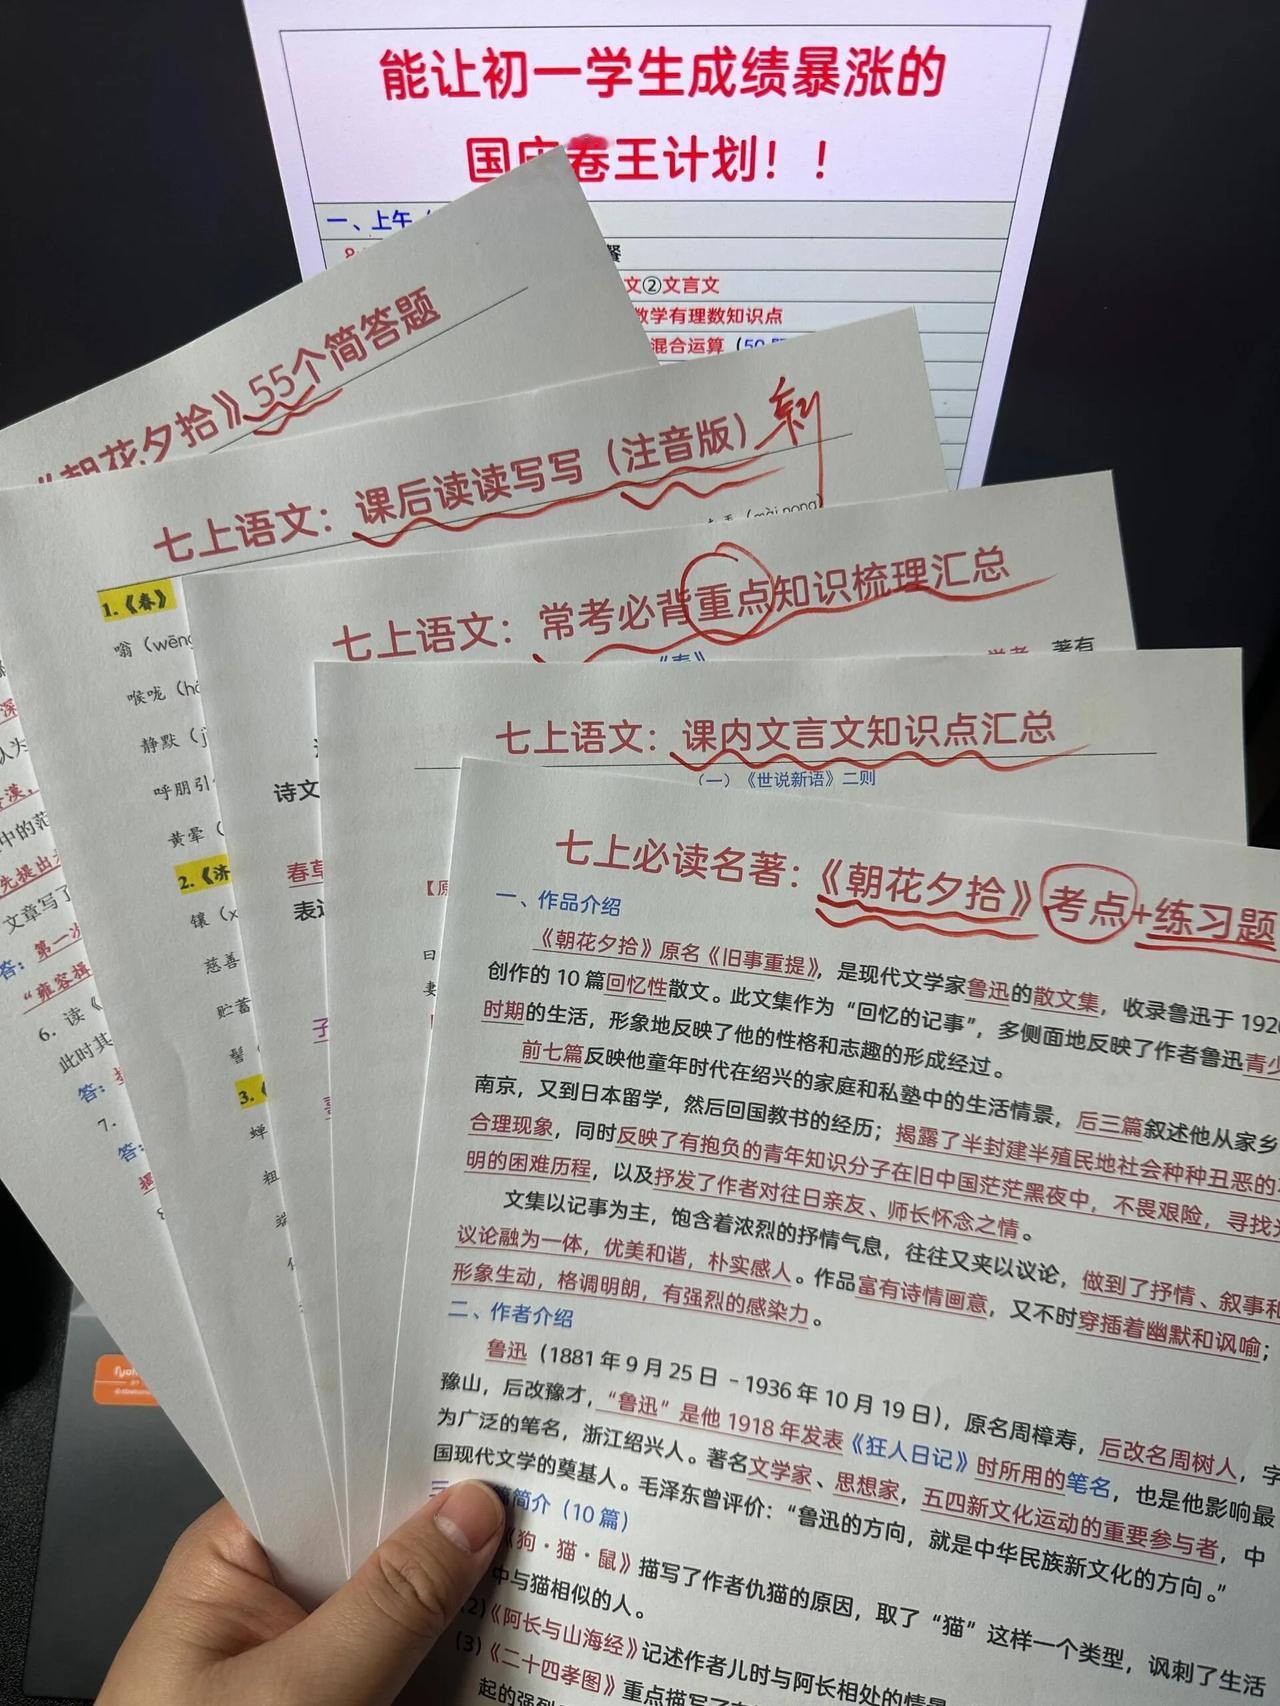 能让初一学生成绩暴涨的
国庆卷王计划！！
一、上午
餐
文②文言文
数学有理数知识点
混合运算（50
《朝花夕拾》55个简答题
七上语文：课后读读写写（注音版）
1.《春》
嗡（wēng
喉咙（hó
静默（j
呼朋引
黄晕（
2.《济
镶（x
慈善
贮蓄
髻（
3.《
蝉
粗
端
深
认为
中的范
先提出
文章写了
答：第一次
“雍容揖
6. 读《
此时其
答：
7.
答：
七上语文：常考必背重点知识梳理汇总
《春》
著有
诗文
春草
表达
子
七上语文：课内文言文知识点汇总
（一）《世说新语》二则
【原
曰
妻
七上必读名著：《朝花夕拾》考点+练习题
一、作品介绍
《朝花夕拾》原名《旧事重提》，是现代文学家鲁迅的散文集，收录鲁迅于 1926
创作的 10 篇回忆性散文。此文集作为“回忆的记事”，多侧面地反映了作者鲁迅青少
时期的生活，形象地反映了他的性格和志趣的形成经过。
前七篇反映他童年时代在绍兴的家庭和私塾中的生活情景，后三篇叙述他从家乡
南京，又到日本留学，然后回国教书的经历；揭露了半封建半殖民地社会种种丑恶的
合理现象，同时反映了有抱负的青年知识分子在旧中国茫茫黑夜中，不畏艰险，寻找光
明的困难历程，以及抒发了作者对往日亲友、师长怀念之情。
文集以记事为主，饱含着浓烈的抒情气息，往往又夹以议论，做到了抒情、叙事和
议论融为一体，优美和谐，朴实感人。作品富有诗情画意，又不时穿插着幽默和讽喻；
形象生动，格调明朗，有强烈的感染力。
二、作者介绍
鲁迅（1881 年 9 月 25 日 -1936 年 10 月 19 日），原名周樟寿，后改名周树人，字
豫山，后改豫才，“鲁迅”是他 1918 年发表《狂人日记》时所用的笔名，也是他影响最
为广泛的笔名，浙江绍兴人。著名文学家、思想家，五四新文化运动的重要参与者，中
国现代文学的奠基人。毛泽东曾评价：“鲁迅的方向，就是中华民族新文化的方向。”
三、 简介（10 篇）
《狗·猫·鼠》描写了作者仇猫的原因，取了“猫”这样一个类型，讽刺了生活
中与猫相似的人。
(2)《阿长与山海经》记述作者儿时与阿长相处的情景
(3)《二十四孝图》重点描写了
起的强烈